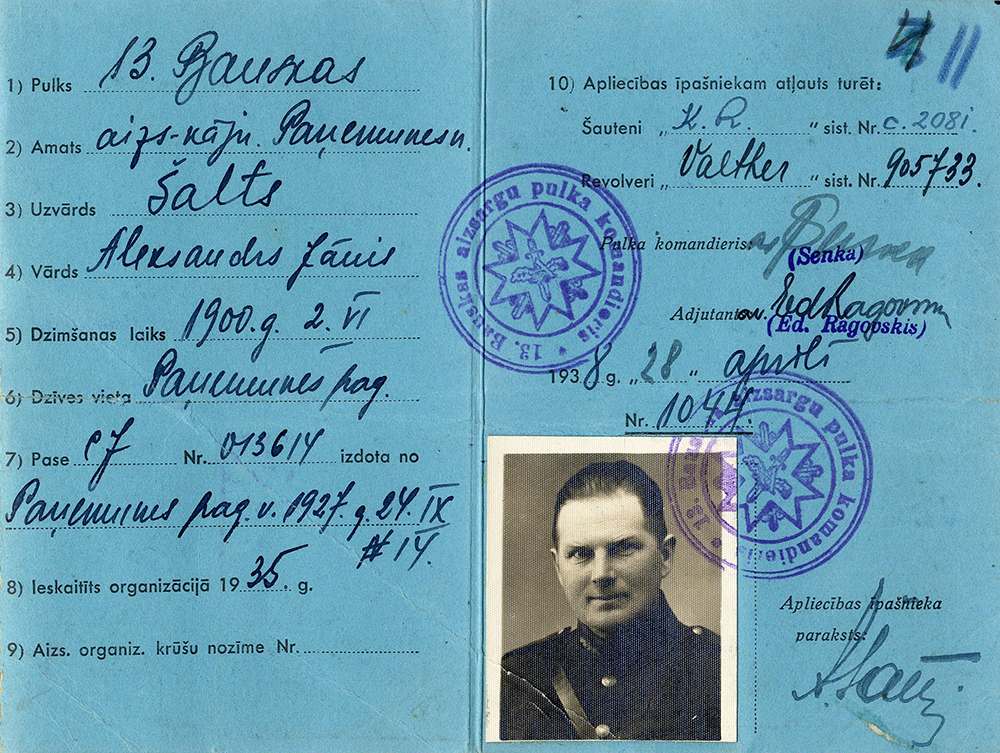 1) Pulks 13. Bauskas
2) Amats aizs-kājn. Paņemunes n.
3) Uzvārds Šalts
4) Vārds Aleksandrs Jānis
5) Dzimšanas laiks 1900.g. 2. VI
6) Dzīves vieta Paņemunes pag.
7) Pase Nr. 013614 izdota no
Paņemunes pag. v. 1927. g. 24. IX
# 14.
8) Ieskaitīts organizācijā 1935. g.
9) Aizs. organiz. krūšu nozīme Nr.
11
10) Apliecības īpašniekam atļauts turēt:
Šauteni „ K. R. “ sist. Nr. c. 2081.
Revolveri „ Valther “ sist. Nr. 905733.
Pulka komandieris:
(Senka)
Adjutants
(Ed. Ragovskis)
1938 g. „28“ aprīlī
Nr. 1044.
13. Bauskas aizsargu pulka komandieris
13. Bauskas aizsargu pulka komandieris
Apliecības īpašnieka
paraksts: